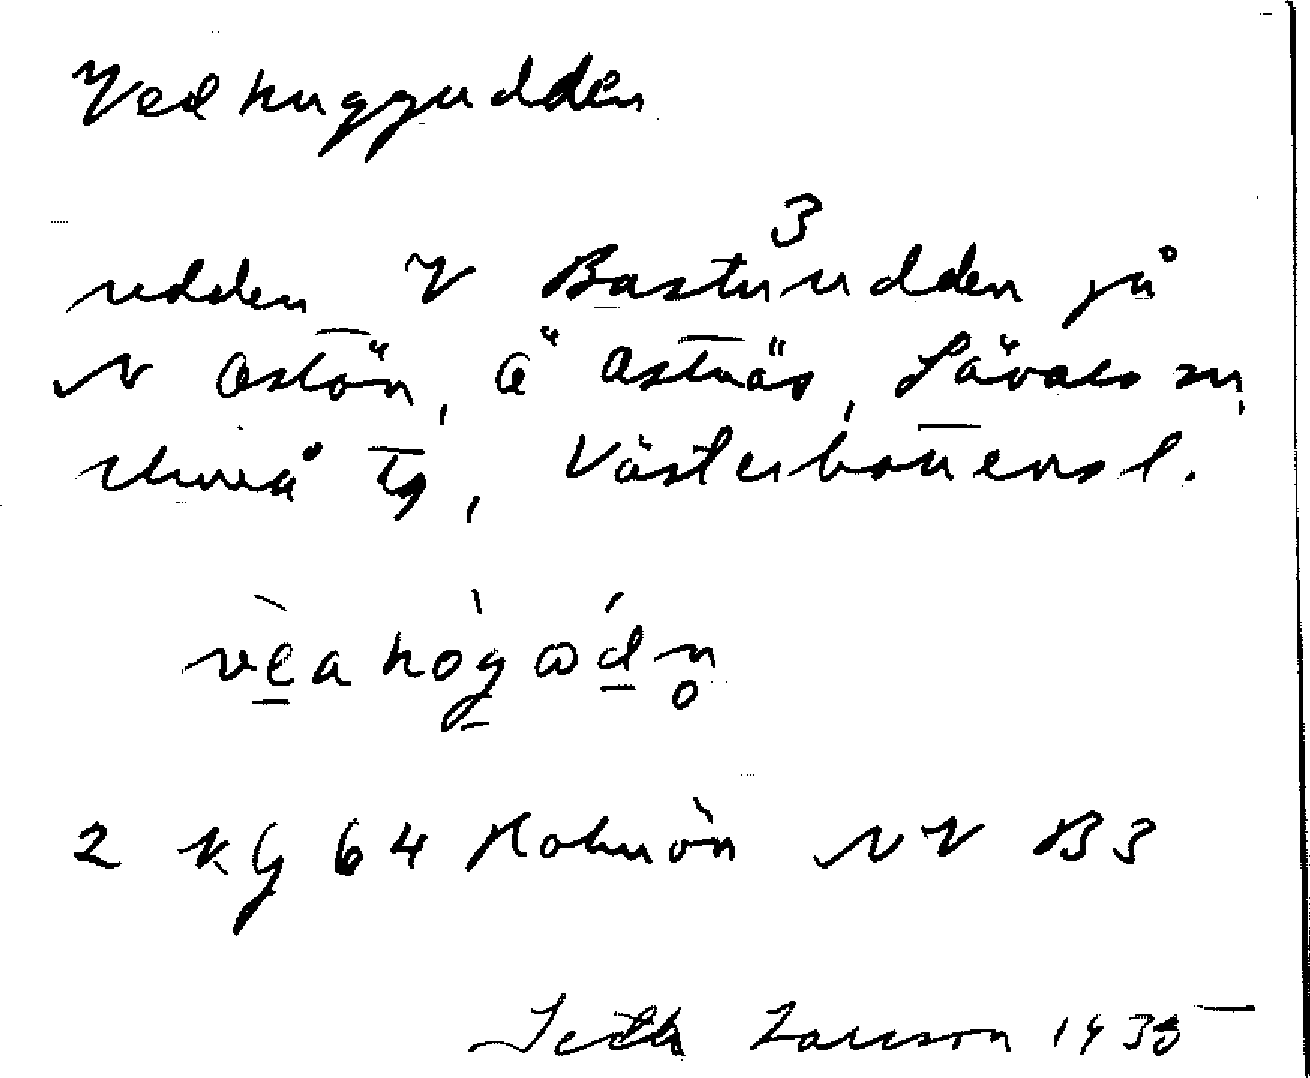 Vedhuggudden
3
udden V Bastuudden på
N Ostön, Ö Ostnäs, Sävars sn,
Umeå tg, Västerbottens l.
2 KG 64 Holmön NV B3
Seth Larsson 1935